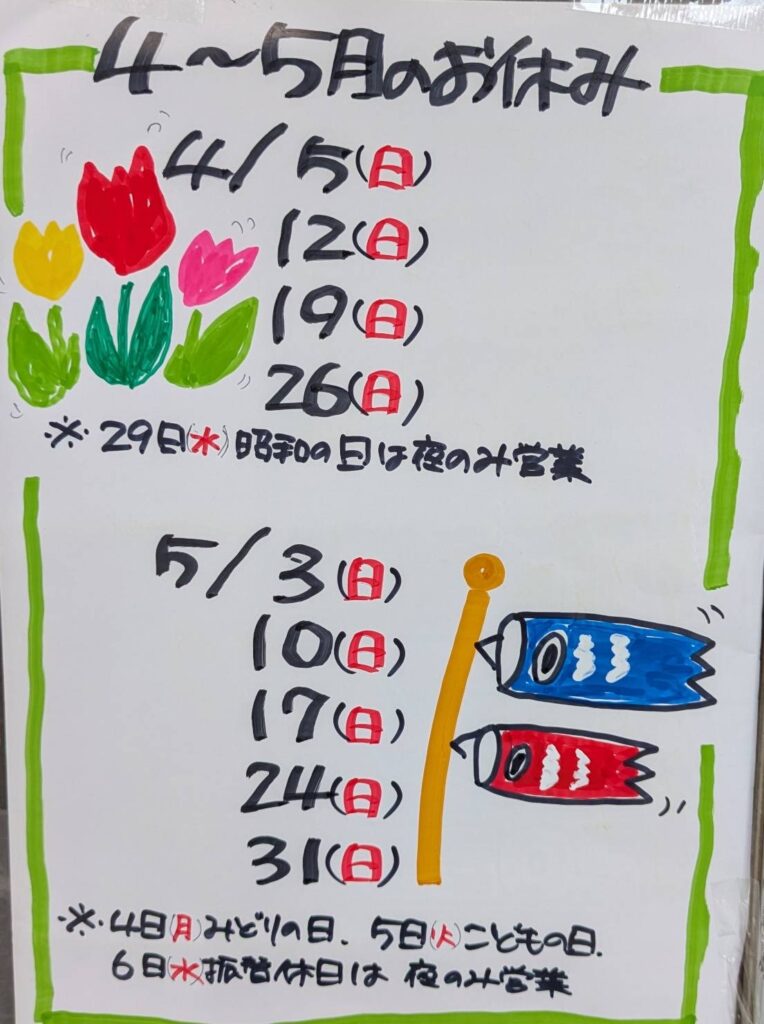 4～5月のお休み
4/5(日)
12(日)
19(日)
26(日)
※29日(水)昭和の日は夜のみ営業
5/3(日)
10(日)
17(日)
24(日)
31(日)
※4日(月)みどりの日、5日(火)こどもの日、
6日(水)振替休日は 夜のみ営業